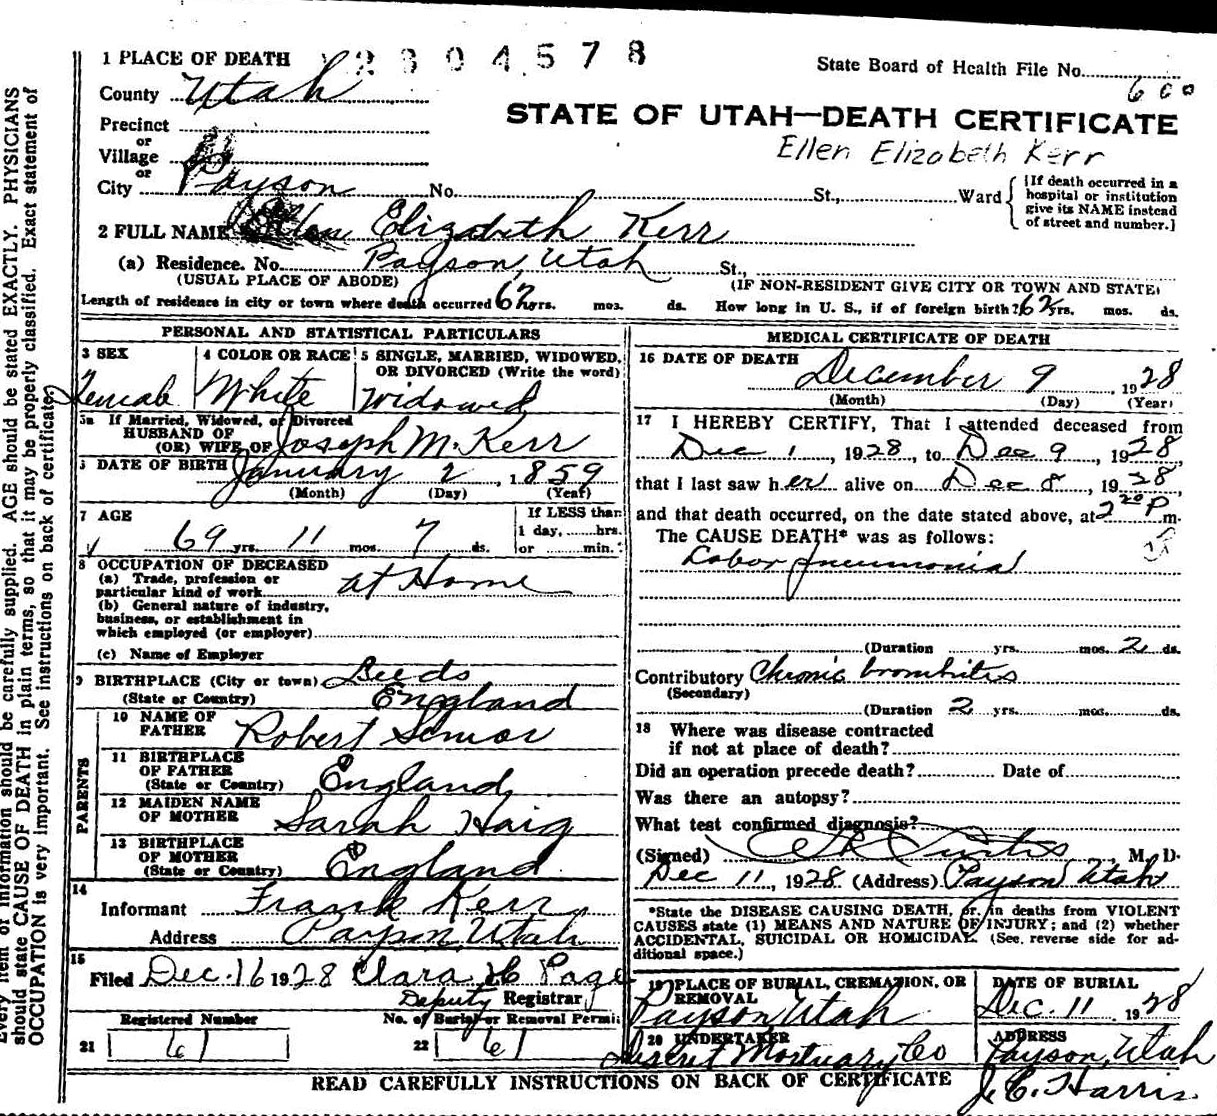 1 PLACE OF DEATH 2304578
State Board of Health File No. 600
County Utah
STATE OF UTAH—DEATH CERTIFICATE
Precinct
or
Village
Ellen Elizabeth Kerr
or
City Payson No. St., Ward
{If death occurred in a
hospital or institution
give its NAME instead
of street and number.}
2 FULL NAME Ellen Elizabeth Kerr
(a) Residence. No. Payson, Utah St.,
(USUAL PLACE OF ABODE) (IF NON-RESIDENT GIVE CITY OR TOWN AND STATE)
Length of residence in city or town where death occurred 62 yrs. mos. ds. How long in U. S., if of foreign birth? 62 yrs. mos. ds.
PERSONAL AND STATISTICAL PARTICULARS
3 SEX 4 COLOR OR RACE 5 SINGLE, MARRIED, WIDOWED,
OR DIVORCED (Write the word)
Female White Widowed
5a If Married, Widowed, or Divorced
HUSBAND OF
(OR) WIFE OF Joseph M. Kerr
6 DATE OF BIRTH January 2, 1859
(Month) (Day) (Year)
7 AGE If LESS than
1 day, hrs.
69 yrs. 11 mos. 7 ds. or min.
8 OCCUPATION OF DECEASED
(a) Trade, profession or
particular kind of work at Home
(b) General nature of industry,
business, or establishment in
which employed (or employer)
(c) Name of Employer
9 BIRTHPLACE (City or town) Leeds
(State or Country) England
PARENTS
10 NAME OF
FATHER Robert Senior
11 BIRTHPLACE
OF FATHER
(State or Country) England
12 MAIDEN NAME
OF MOTHER Sarah Haig
13 BIRTHPLACE
OF MOTHER
(State or Country) England
14
Informant Frank Kerr
Address Payson, Utah
15
Filed Dec. 16 1928 Clara H Page
Deputy Registrar
Registered Number No. of Burial or Removal Permit
21 61 22 61
MEDICAL CERTIFICATE OF DEATH
16 DATE OF DEATH
December 9, 1928
(Month) (Day) (Year)
17 I HEREBY CERTIFY, That I attended deceased from
Dec 1, 1928, to Dec 9, 1928,
that I last saw her alive on Dec 8, 1928
and that death occurred, on the date stated above, at 2 20 P m.
The CAUSE DEATH* was as follows:
Lobor pneumonia
(Duration yrs. mos. 2 ds.
Contributory Chronic bronchitis
(Secondary)
(Duration 2 yrs. mos. ds.
18 Where was disease contracted
if not at place of death?
Did an operation precede death? Date of
Was there an autopsy?
What test confirmed diagnosis?
(Signed) Curtis M. D.
Dec 11, 1928 (Address) Payson Utah
*State the DISEASE CAUSING DEATH, or, in deaths from VIOLENT
CAUSES state (1) MEANS AND NATURE OF INJURY; and (2) whether
ACCIDENTAL, SUICIDAL OR HOMICIDAL. (See reverse side for ad-
ditional space.)
19 PLACE OF BURIAL, CREMATION, OR
REMOVAL
Payson Utah
DATE OF BURIAL
Dec. 11 1928
20 UNDERTAKER
Deseret Mortuary Co
ADDRESS
Payson, Utah
J. C. Harris.
READ CAREFULLY INSTRUCTIONS ON BACK OF CERTIFICATE
Every item of information should be carefully supplied. AGE should be stated EXACTLY. PHYSICIANS
should state CAUSE OF DEATH in plain terms, so that it may be properly classified. Exact statement of
OCCUPATION is very important. See instructions on back of certificate.